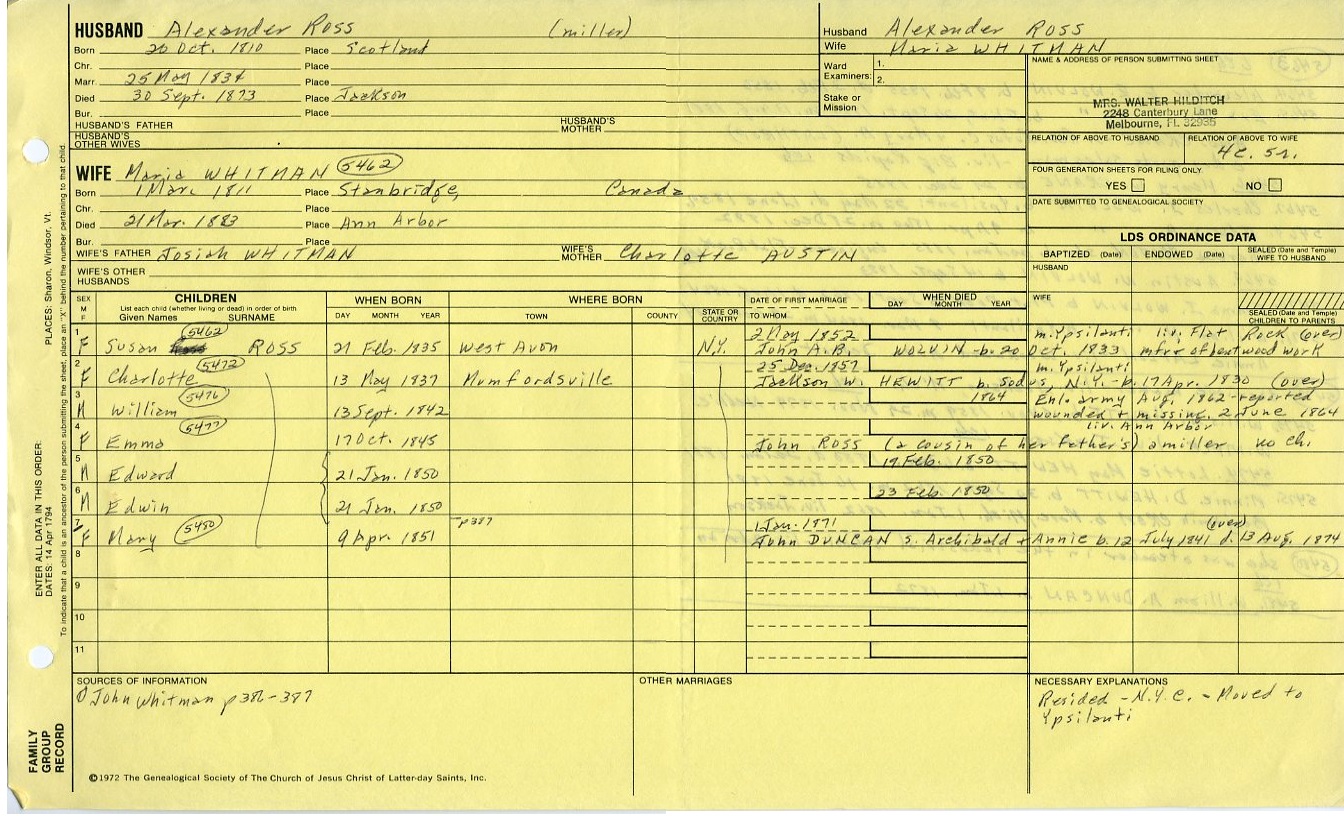 HUSBAND Alexander Ross (miller)
Born 20 Oct. 1810 Place Scotland
Chr. Place
Marr. 25 May 1834 Place
Died 30 Sept. 1873 Place Jackson
Bur. Place
HUSBAND'S FATHER HUSBAND'S MOTHER
HUSBAND'S OTHER WIVES
WIFE Maria WHITMAN 5462
Born 1 Mar. 1811 Place Stanbridge, Canada
Chr. Place
Died 21 Mar. 1883 Place Ann Arbor
Bur. Place
WIFE'S FATHER Josiah WHITMAN WIFE'S MOTHER Charlotte AUSTIN
WIFE'S OTHER HUSBANDS
Husband Alexander Ross
Wife Maria WHITMAN
Ward Examiners: 1. 2.
Stake or Mission
NAME & ADDRESS OF PERSON SUBMITTING SHEET
MRS. WALTER HILDITCH
2248 Canterbury Lane
Melbourne, Fl. 32935
RELATION OF ABOVE TO HUSBAND RELATION OF ABOVE TO WIFE
4c. 5r.
FOUR GENERATION SHEETS FOR FILING ONLY
YES NO
DATE SUBMITTED TO GENEALOGICAL SOCIETY
LDS ORDINANCE DATA
BAPTIZED (Date) ENDOWED (Date) SEALED (Date and Temple) WIFE TO HUSBAND
HUSBAND
WIFE
SEALED (Date and Temple) CHILDREN TO PARENTS
SEX M F
CHILDREN
List each child (whether living or dead) in order of birth
Given Names SURNAME
WHEN BORN
DAY MONTH YEAR
WHERE BORN
TOWN COUNTY STATE OR COUNTRY
DATE OF FIRST MARRIAGE
TO WHOM
WHEN DIED
DAY MONTH YEAR
1 5462 2 May 1852 m. Ypsilanti liv. Flat Rock (over)
F Susan ROSS 21 Feb. 1835 West Avon N.Y. John A.B. WOLVIN - b. 20 Oct. 1833 mfrr of bent wood work
2 5472 25 Dec. 1857 m. Ypsilanti
F Charlotte 13 May 1837 Mumfordsville Jackson W. HEWITT b. Sodus, N.Y. - b. 17 Apr. 1830 (over)
3 5476 1864 Enl. army Aug. 1862 - reported
M William 13 Sept. 1842 wounded + missing, 2 June 1864
4 5477 liv. Ann Arbor
F Emma 17 Oct. 1845 John ROSS (a cousin of her father's) a miller no ch.
5 19 Feb. 1850
M Edward 21 Jan. 1850
6 23 Feb. 1850
M Edwin 21 Jan. 1850
7 5480 p387 1 Jan. 1871 (over)
F Mary 9 Apr. 1851 John DUNCAN s. Archibald + Annie b. 12 July 1841 d. 13 Aug. 1874
8
9
10
11
SOURCES OF INFORMATION
① John Whitman p 386-387
OTHER MARRIAGES
NECESSARY EXPLANATIONS
Resided - N.Y.C. - Moved to
Ypsilanti
©1972 The Genealogical Society of The Church of Jesus Christ of Latter-day Saints, Inc.
FAMILY GROUP RECORD
ENTER ALL DATA IN THIS ORDER:
DATES: 14 Apr 1794
PLACES: Sharon, Windsor, Vt.
To indicate that a child is an ancestor of the person submitting the sheet, place an "X" behind the number pertaining to that child.